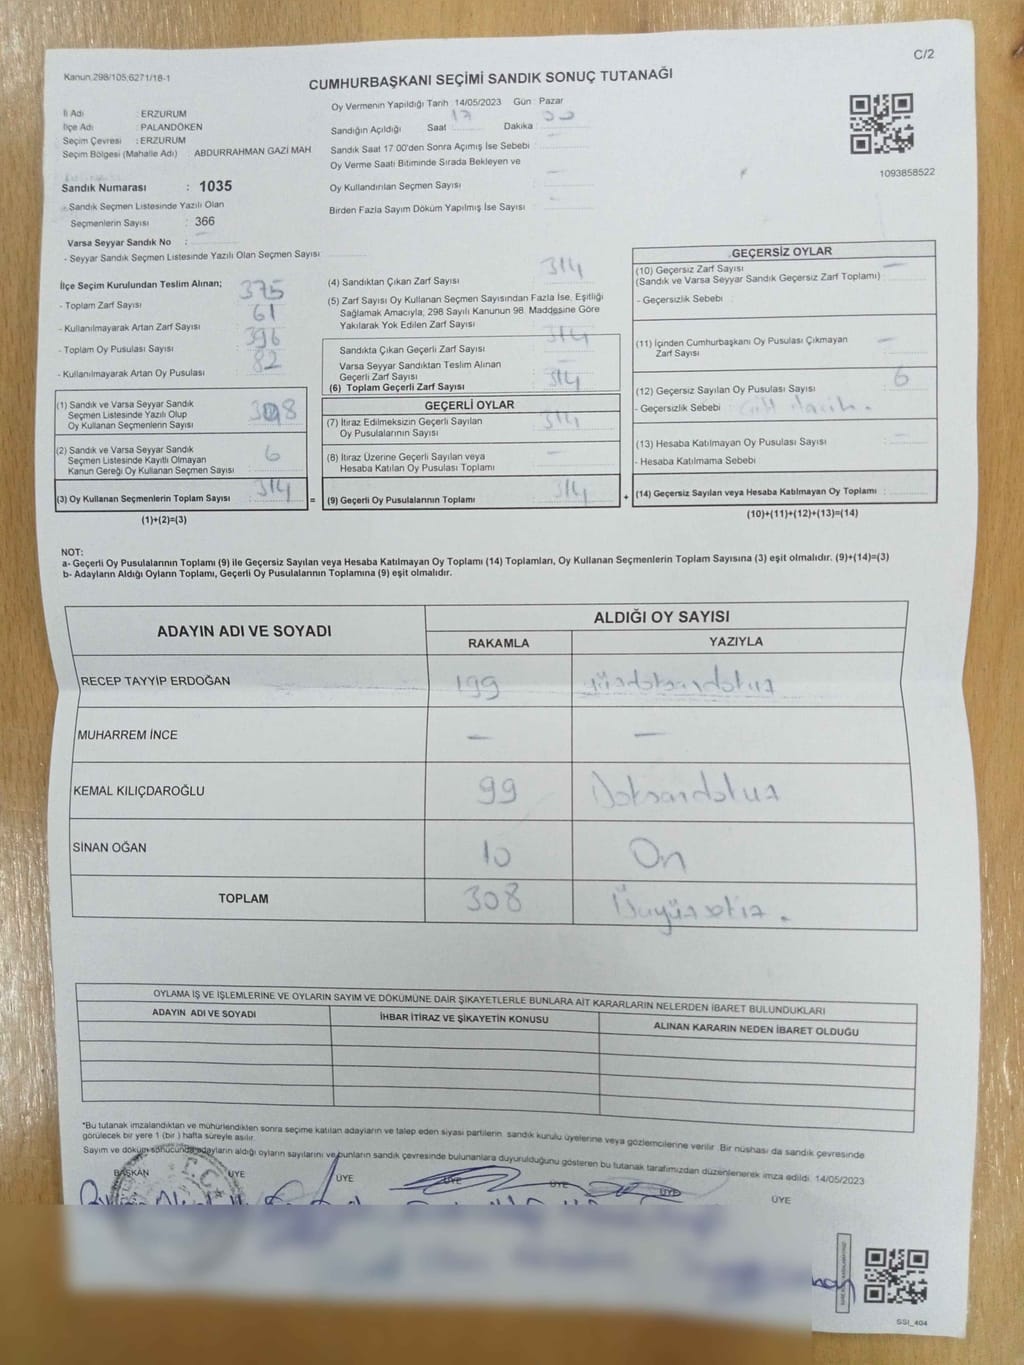 C/2
Kanun.298/105;6271/18-1
CUMHURBAŞKANI SEÇİMİ SANDIK SONUÇ TUTANAĞI
İl Adı : ERZURUM
İlçe Adı : PALANDÖKEN
Seçim Çevresi : ERZURUM
Seçim Bölgesi (Mahalle Adı) : ABDURRAHMAN GAZİ MAH
Sandık Numarası : 1035
- Sandık Seçmen Listesinde Yazılı Olan
Seçmenlerin Sayısı : 366
Varsa Seyyar Sandık No :
- Seyyar Sandık Seçmen Listesinde Yazılı Olan Seçmen Sayısı :
Oy Vermenin Yapıldığı Tarih 14/05/2023 Gün Pazar
Sandığın Açıldığı Saat 17 Dakika
Sandık Saat 17:00'den Sonra Açılmış İse Sebebi :
Oy Verme Saati Bitiminde Sırada Bekleyen ve
Oy Kullandırılan Seçmen Sayısı :
Birden Fazla Sayım Döküm Yapılmış İse Sayısı :
1093858522
İlçe Seçim Kurulundan Teslim Alınan;
- Toplam Zarf Sayısı : 375
- Kullanılmayarak Artan Zarf Sayısı : 61
- Toplam Oy Pusulası Sayısı : 396
- Kullanılmayarak Artan Oy Pusulası : 82
(1) Sandık ve Varsa Seyyar Sandık
Seçmen Listesinde Yazılı Olup
Oy Kullanan Seçmenlerin Sayısı : 308
(2) Sandık ve Varsa Seyyar Sandık
Seçmen Listesinde Kayıtlı Olmayan
Kanun Gereği Oy Kullanan Seçmen Sayısı : 6
(3) Oy Kullanan Seçmenlerin Toplam Sayısı : 314
(1)+(2)=(3)
=
(4) Sandıktan Çıkan Zarf Sayısı : 314
(5) Zarf Sayısı Oy Kullanan Seçmen Sayısından Fazla İse, Eşitliği
Sağlamak Amacıyla, 298 Sayılı Kanunun 98. Maddesine Göre
Yakılarak Yok Edilen Zarf Sayısı :
Sandıkta Çıkan Geçerli Zarf Sayısı : 314
Varsa Seyyar Sandıktan Teslim Alınan
Geçerli Zarf Sayısı : –
(6) Toplam Geçerli Zarf Sayısı : 314
GEÇERLİ OYLAR
(7) İtiraz Edilmeksizin Geçerli Sayılan
Oy Pusulalarının Sayısı : 314
(8) İtiraz Üzerine Geçerli Sayılan veya
Hesaba Katılan Oy Pusulası Toplamı : –
(9) Geçerli Oy Pusulalarının Toplamı : 314
+
GEÇERSİZ OYLAR
(10) Geçersiz Zarf Sayısı : –
(Sandık ve Varsa Seyyar Sandık Geçersiz Zarf Toplamı)
- Geçersizlik Sebebi :
(11) İçinden Cumhurbaşkanı Oy Pusulası Çıkmayan
Zarf Sayısı : –
(12) Geçersiz Sayılan Oy Pusulası Sayısı : 6
- Geçersizlik Sebebi :
(13) Hesaba Katılmayan Oy Pusulası Sayısı : –
- Hesaba Katılmama Sebebi :
(14) Geçersiz Sayılan veya Hesaba Katılmayan Oy Toplamı :
(10)+(11)+(12)+(13)=(14)
NOT:
a- Geçerli Oy Pusulalarının Toplamı (9) ile Geçersiz Sayılan veya Hesaba Katılmayan Oy Toplamı (14) Toplamları, Oy Kullanan Seçmenlerin Toplam Sayısına (3) eşit olmalıdır. (9)+(14)=(3)
b- Adayların Aldığı Oyların Toplamı, Geçerli Oy Pusulalarının Toplamına (9) eşit olmalıdır.
ADAYIN ADI VE SOYADI
ALDIĞI OY SAYISI
RAKAMLA YAZIYLA
RECEP TAYYİP ERDOĞAN 199 yüzdoksandokuz
MUHARREM İNCE – –
KEMAL KILIÇDAROĞLU 99 Doksandokuz
SİNAN OĞAN 10 On
TOPLAM 308 Üçyüzsekiz.
OYLAMA İŞ VE İŞLEMLERİNE VE OYLARIN SAYIM VE DÖKÜMÜNE DAİR ŞİKAYETLERLE BUNLARA AİT KARARLARIN NELERDEN İBARET BULUNDUKLARI
ADAYIN ADI VE SOYADI İHBAR İTİRAZ VE ŞİKAYETİN KONUSU ALINAN KARARIN NEDEN İBARET OLDUĞU
*Bu tutanak imzalandıktan ve mühürlendikten sonra seçime katılan adayların ve talep eden siyasi partilerin sandık kurulu üyelerine veya gözlemcilerine verilir. Bir nüshası da sandık çevresinde
görülecek bir yere 1 (bir ) hafta süreyle asılır.
Sayım ve döküm sonucunda adayların aldığı oyların sayılarını ve bunların sandık çevresinde bulunanlara duyurulduğunu gösteren bu tutanak tarafımızdan düzenlenerek imza edildi. 14/05/2023
BAŞKAN ÜYE ÜYE ÜYE ÜYE ÜYE ÜYE
T.C.
SSI_404